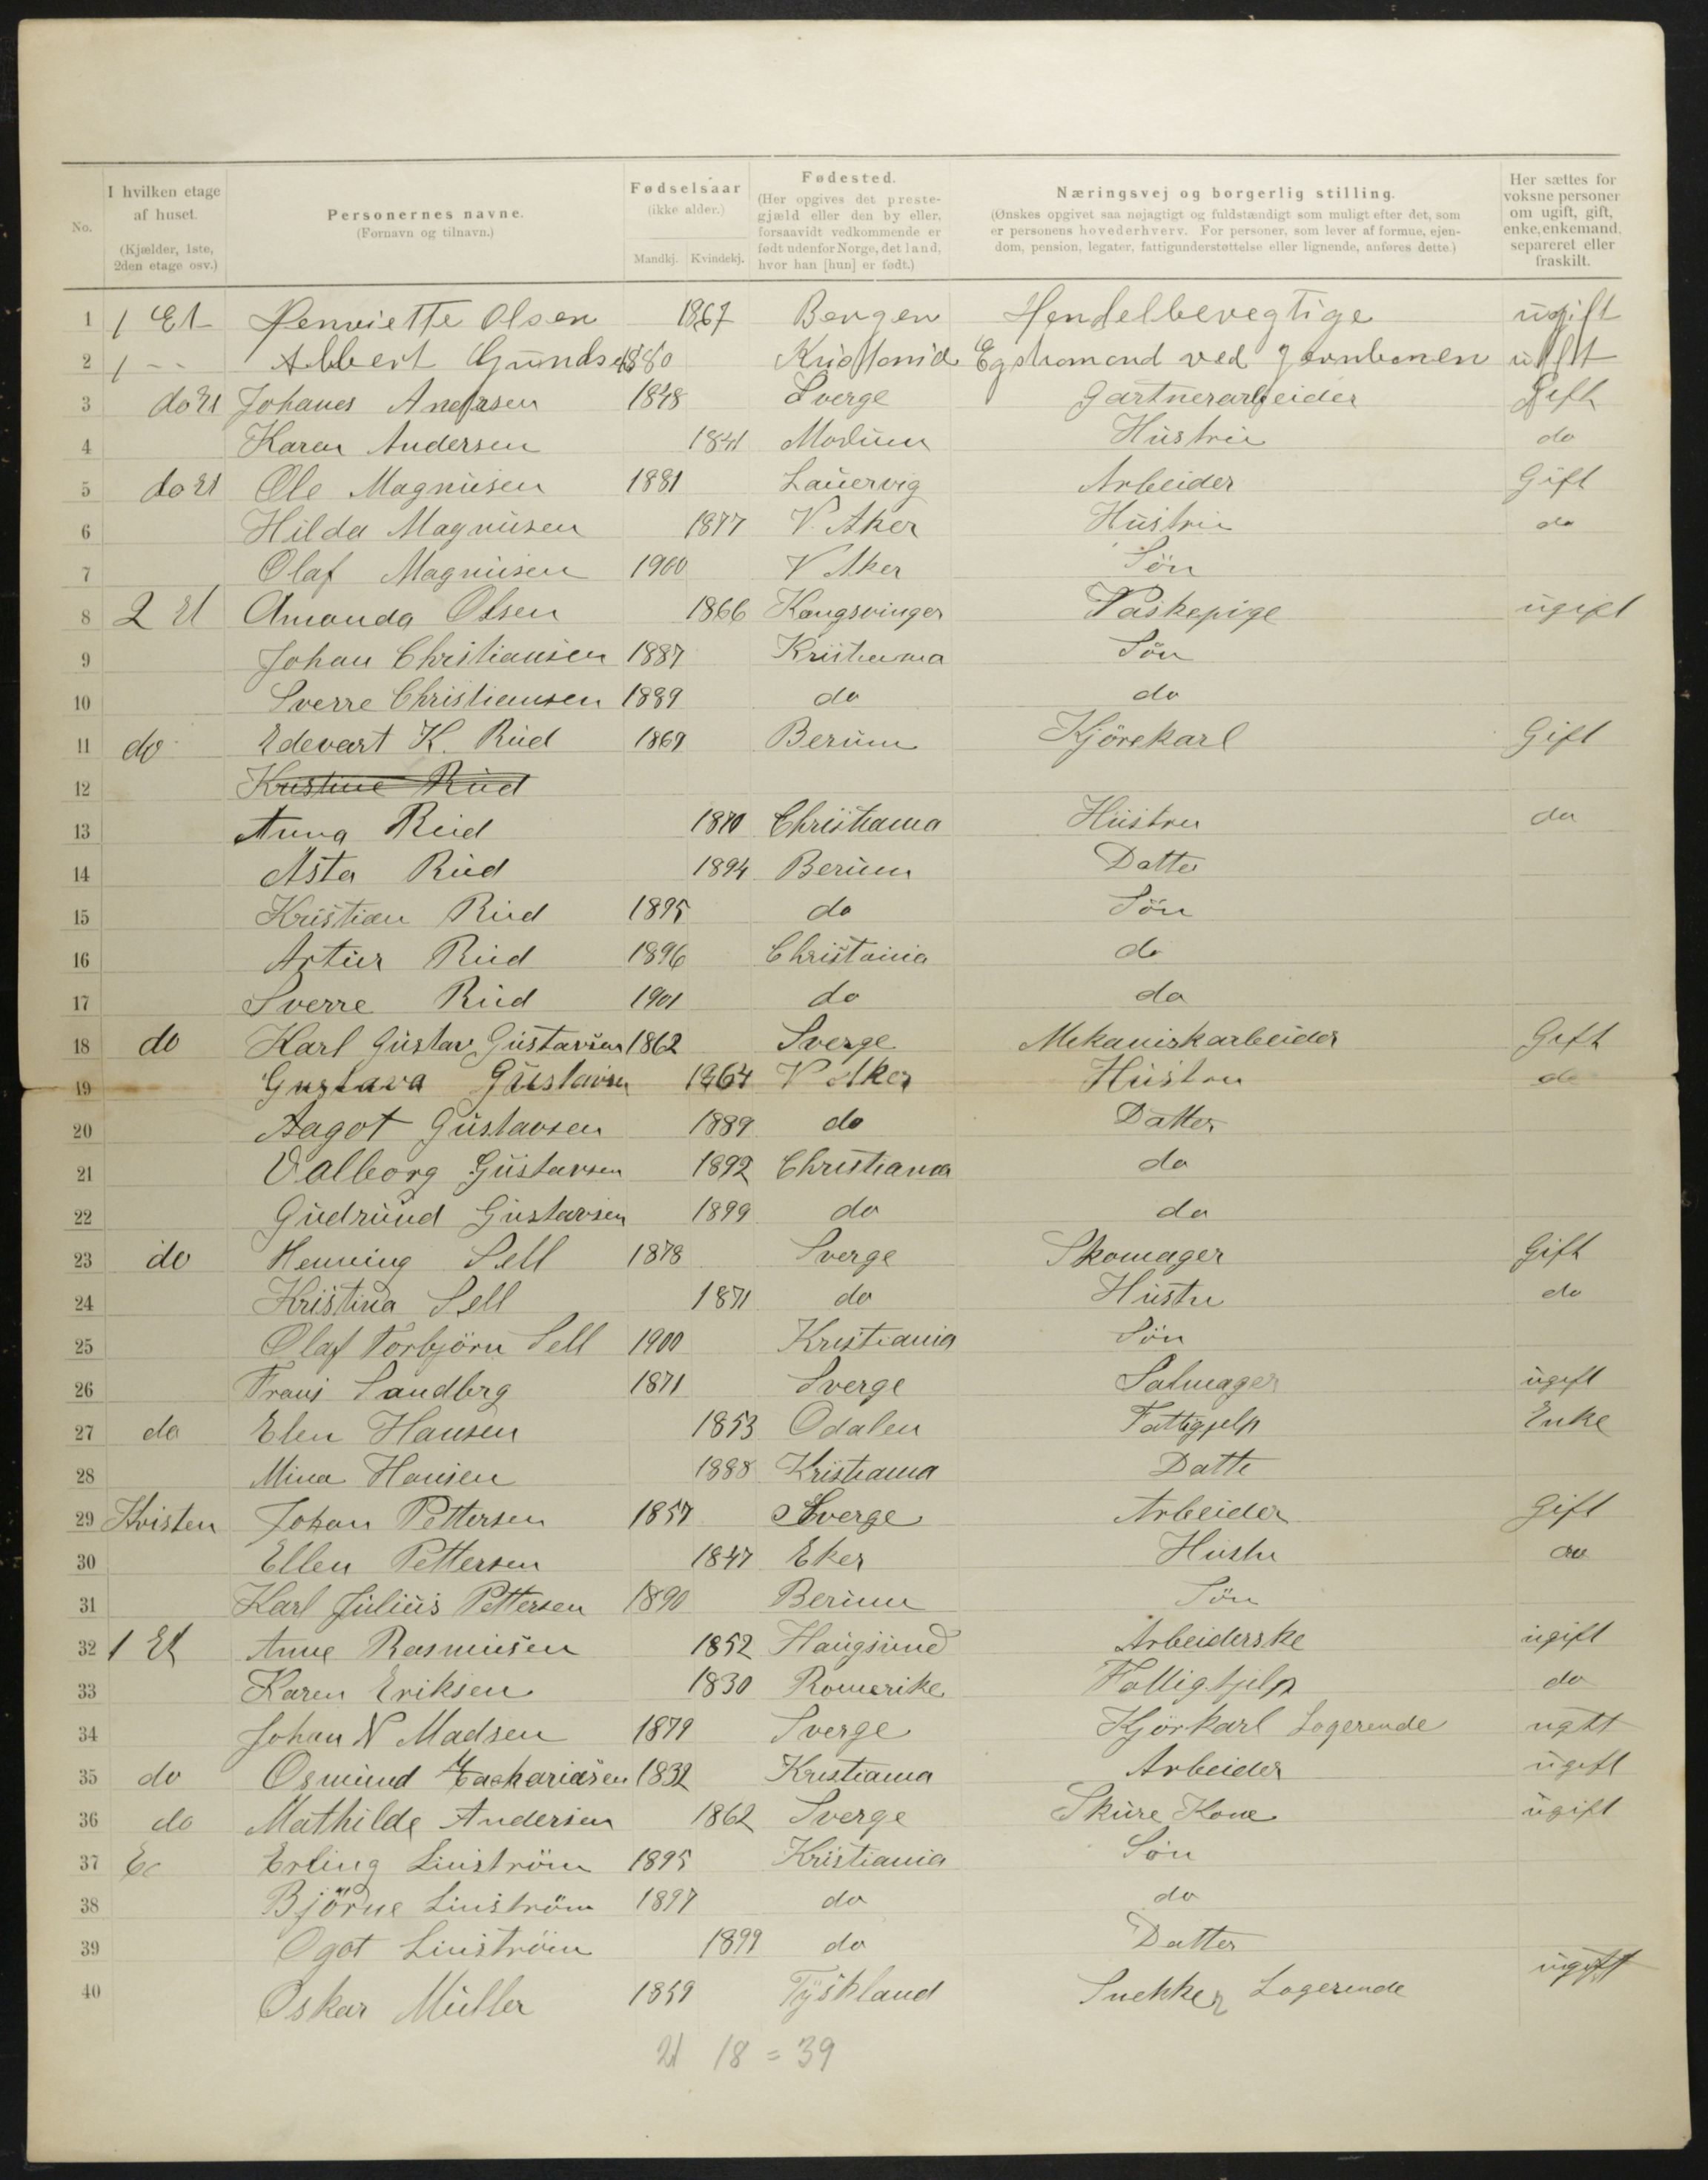 No.
I hvilken etage af huset. (Kjælder, 1ste, 2den etage osv.)
Personernes navne. (Fornavn og tilnavn.)
Fødselsaar (ikke alder.) Mandkj. Kvindekj.
Fødested. (Her opgives det prestegjæld eller den by eller, forsaavidt vedkommende er født udenfor Norge, det land, hvor han [hun] er født.)
Næringsvej og borgerlig stilling. (Ønskes opgivet saa nøjagtigt og fuldstændigt som muligt efter det, som er personens hovederhverv. For personer, som lever af formue, ejendom, pension, legater, fattigunderstøttelse eller lignende, anføres dette.)
Her sættes for voksne personer om ugift, gift, enke, enkemand, separeret eller fraskilt.
1 1 Et Henriette Olsen 1867 Bergen Hendelbevegtige ugift
2 1 -- Albert 1880
3 do Et Johanes Andersen 1848 Sverge Gartnerarbeider Gift
4 Karen Andersen 1841 Modum Hustru do
5 do Et Ole Magnusen 1881 Lauervig Arbeider Gift
6 Hilda Magnusen 1877 V. Aker Hustru do
7 Olaf Magnusen 1900 V Aker Søn
8 2 Et Amanda Olsen 1866 Kongsvinger Vaskepige ugift
9 Johan Christiansen 1887 Kristiania Søn
10 Sverre Christiansen 1889 do do
11 do Edevart K. Rud 1869 Berum Kjörekarl Gift
12 Kristine Rud
13 Anna Rud 1870 Christiania Hustru do
14 Asta Rud 1894 Berum Datter
15 Kristian Rud 1895 do Sön
16 Artur Rud 1896 Christainia do
17 Sverre Rud 1901 do do
18 do Karl Gustav Gustavsen 1862 Sverge Mekaniskarbeider Gift
19 Gustava Gustavsen 1864 V Aker Hustru do
20 Aagot Gustavsen 1889 do Datter
21 Valborg Gustavsen 1892 Christiania do
22 Gudrund Gustavsen 1899 do do
23 do Henning Sell 1878 Sverge Skomager Gift
24 Kristina Sell 1871 do Hustu do
25 Olaf Torbjörn Sell 1900 Kristiania Sön
26 Frans Sandberg 1871 Sverge Salmager ugift
27 do Elen Hansen 1853 Odalen Fattigjelp Enke
28 Mina Hansen 1888 Kristiania Datte
29 Kvisten Johan Pettersen 1857 Sverge Arbeider Gift
30 Ellen Pettersen 1847 Eker Hustu do
31 Karl Julius Pettersen 1890 Berum Sön
32 1 Et Anne Rasmusen 1852 Haugsund Arbeiderske ugift
33 Karen Eriksen 1830 Romerike Fattighjelp do
34 Johan N Madsen 1879 Sverge Kjörkarl Logerende
35 do Osmund Zachariasen 1832 Kristiania Arbeider ugift
36 do Mathilde Andersen 1862 Sverge Skure Kone ugift
37 Erling Linström 1895 Kristiania Sön
38 Björne Linström 1897 do do
39 Ogot Linström 1899 do Datter
40 Oskar Müller 1859 Tyskland Snekker Logerende ugift
21 18 = 39